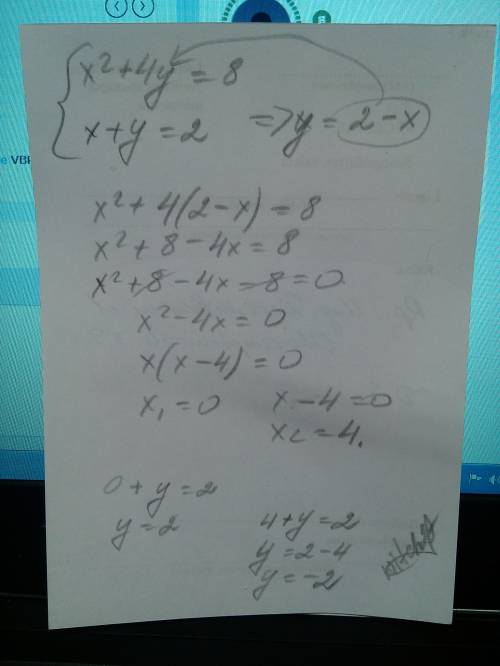 x² + 4y = 8
x + y = 2 => y = 2 - x
x² + 4(2 - x) = 8
x² + 8 - 4x = 8
x² + 8 - 4x - 8 = 0
x² - 4x = 0
x(x - 4) = 0
x₁ = 0 x - 4 = 0
x₂ = 4.
0 + y = 2
y = 2
4 + y = 2
y = 2 - 4
y = -2